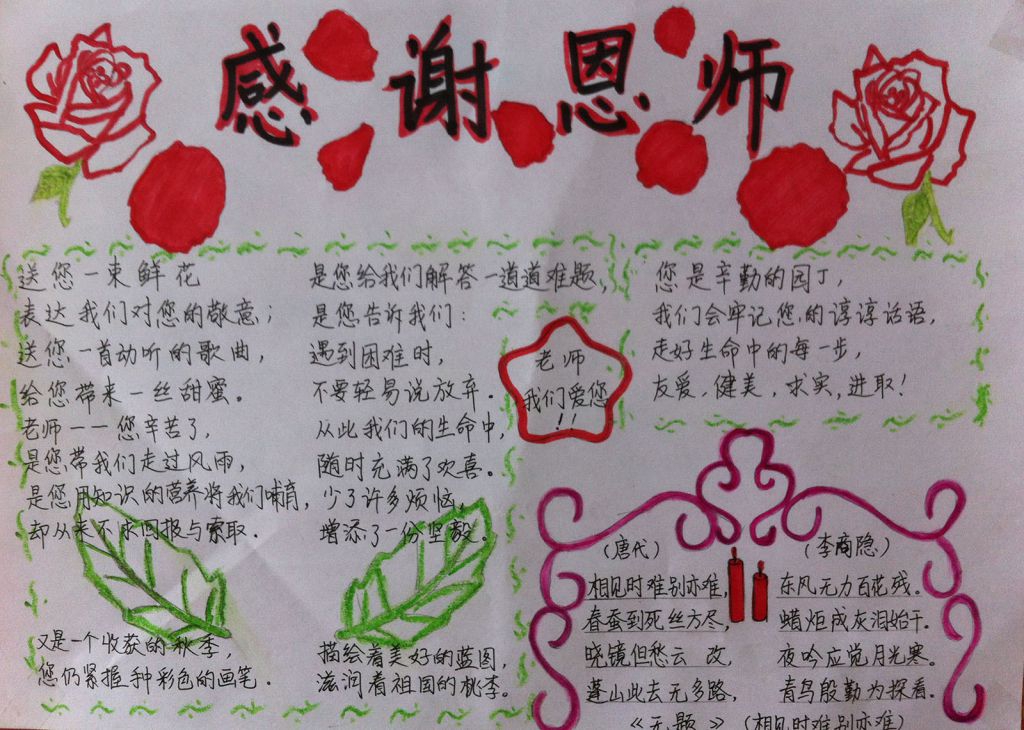 感谢恩师
送您一束鲜花
表达我们对您的敬意；
送您一首动听的歌曲，
给您带来一丝甜蜜。
老师——您辛苦了，
是您带我们走过风雨，
是您用知识的营养将我们哺育，
却从来不求回报与索取．
又是一个收获的秋季，
您仍紧握种彩色的画笔．
是您给我们解答一道道难题，
是您告诉我们：
遇到困难时，
不要轻易说放弃．
从此我们的生命中，
随时充满了欢喜。
少了许多烦恼，
增添了一份坚毅。
描绘着美好的蓝图，
滋润着祖国的桃李。
老师
我们爱您
！！
您是辛勤的园丁，
我们会牢记您的谆谆话语，
走好生命中的每一步，
友爱，健美，求实，进取！
（唐代） （李商隐）
相见时难别亦难，东风无力百花残。
春蚕到死丝方尽，蜡炬成灰泪始干．
晓镜但愁云 改，夜吟应觉月光寒。
蓬山此去无多路，青鸟殷勤为探看．
《无题》（相见时难别亦难）